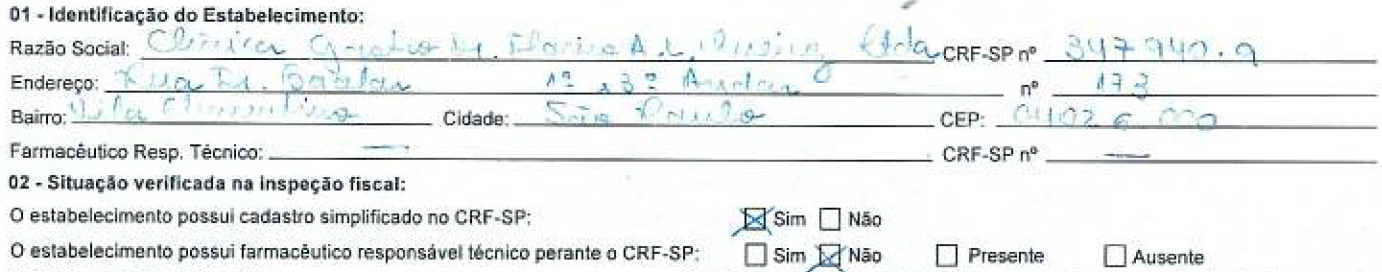 01 - Identificação do Estabelecimento:
Razão Social: Clínica A. L. Ltda CRF-SP nº 347940.9
Endereço: Rua 1º e 3º Andar nº 173
Bairro: Vila Clementino Cidade: São Paulo CEP: 04026 000
Farmacêutico Resp. Técnico: — CRF-SP nº —
02 - Situação verificada na inspeção fiscal:
O estabelecimento possui cadastro simplificado no CRF-SP: ☒ Sim ☐ Não
O estabelecimento possui farmacêutico responsável técnico perante o CRF-SP: ☐ Sim ☒ Não ☐ Presente ☐ Ausente